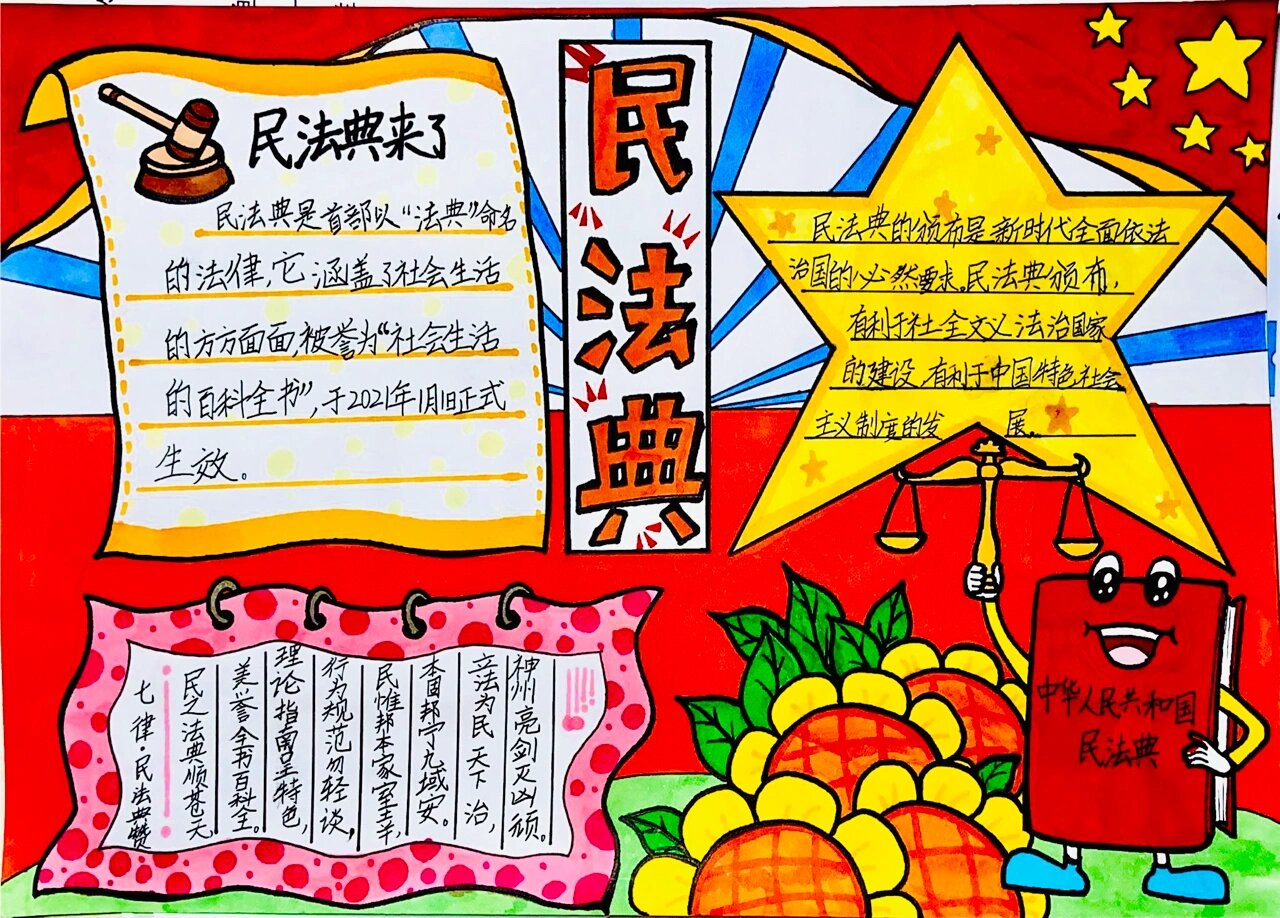 民法典
民法典来了
民法典是首部以“法典”命名
的法律,它涵盖了社会生活
的方方面面,被誉为“社会生活
的百科全书”,于2021年1月1日正式
生效。
民法典的颁布是新时代全面依法
治国的必然要求。民法典颁布,
有利于社会主义法治国家
的建设,有利于中国特色社会
主义制度的发展。
七律·民法典赞
民之法典顺苍天
美誉全书百科全。
理论指南呈特色,
行为规范勿轻谈,
民惟邦本家室
本固邦宁九域安。
立法为民天下治,
神州亮剑灭凶顽。
中华人民共和国
民法典